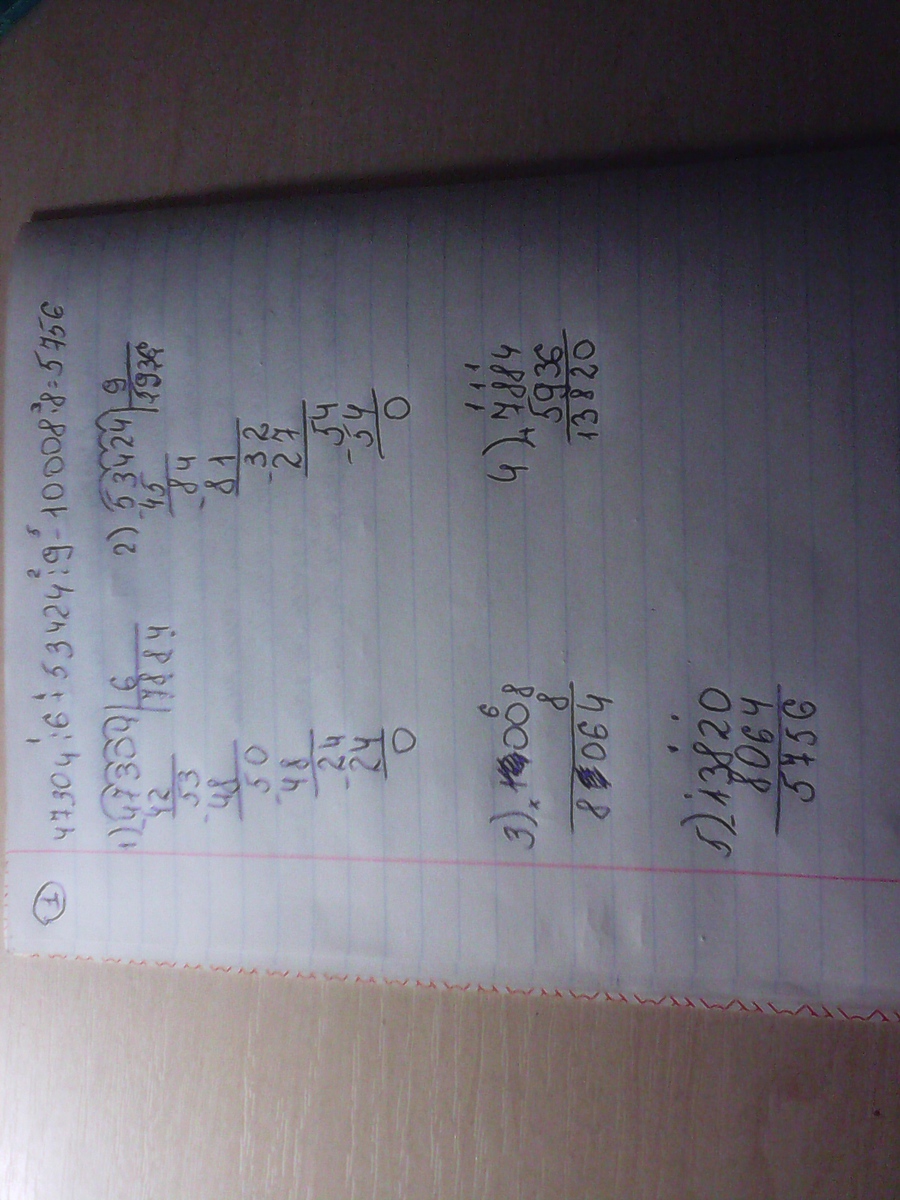 1
1 4 2 5 3
47304:6+53424:9-10008·8=5756
1) -47304|6
42 |7884
53
-48
50
-48
24
-24
0
2) -53424|9
45 |5936
-84
81
-32
27
54
-54
0
3) 6
×1008
8
8064
4) 1 1 1
+7884
5936
13820
5) -13820
8064
5756